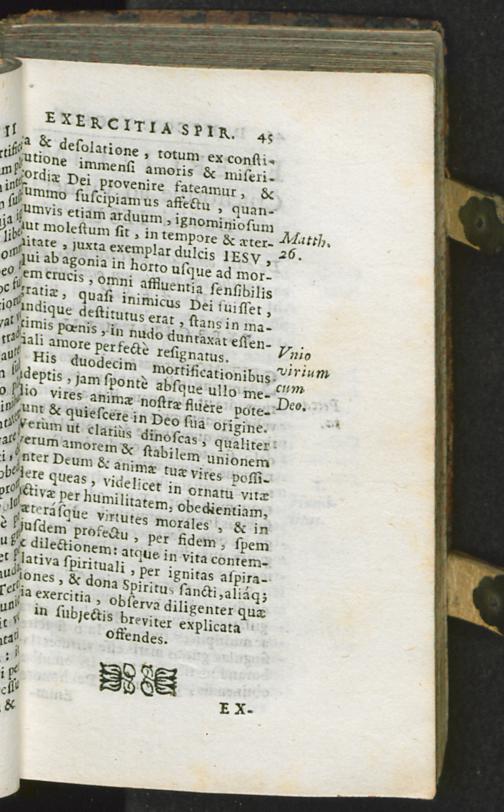 EXERCITIA SPIR. 45
a & desolatione, totum ex consti-
tutione immensi amoris & miseri-
cordiæ Dei provenire fateamur, &
summo suscipiamus affectu, quan-
tumvis etiam arduum, ignominiosum
aut molestum sit, in tempore & æter-
nitate, juxta exemplar dulcis IESV,
qui ab agonia in horto usque ad mor-
tem crucis, omni affluentia sensibilis
gratiæ, quasi inimicus Dei fuisset,
undique destitutus erat, stans in ma-
ximis pœnis, in nudo duntaxat essen-
tiali amore perfectè resignatus.
Matth.
26.
His duodecim mortificationibus
adeptis, jam spontè absque ullo me-
dio vires animæ nostræ fluere pote-
runt & quiescere in Deo sua origine.
Verùm ut clariùs dinoscas, qualiter
verum amorem & stabilem unionem
inter Deum & animæ tuæ vires possi-
dere queas, videlicet in ornatu vitæ
activæ per humilitatem, obedientiam,
cæterásque virtutes morales, & in
ejusdem profectu, per fidem, spem
& dilectionem: atque in vita contem-
plativa spirituali, per ignitas aspira-
tiones, & dona Spiritus sancti, aliáq;
ia exercitia, observa diligenter quæ
in subjectis breviter explicata
offendes.
Vnio
virium
cum
Deo.
EX-